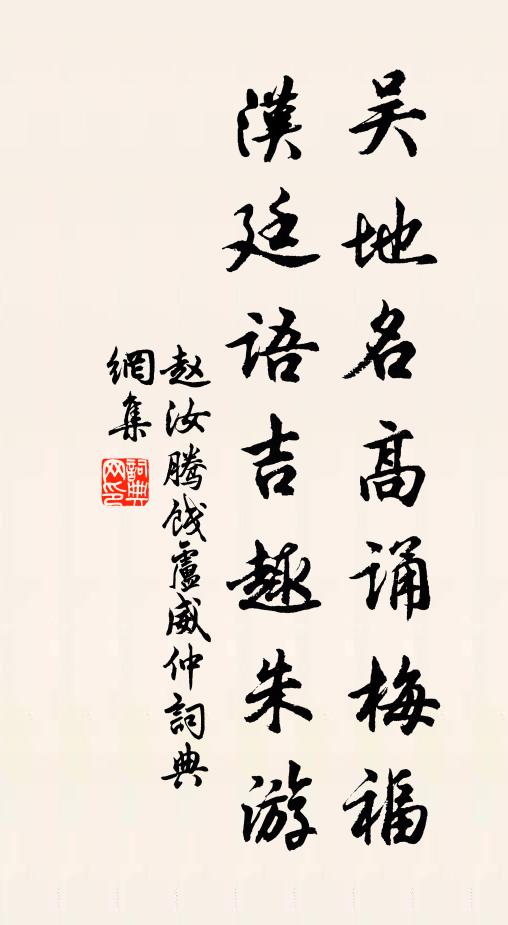 吴地名高诵梅福
漢廷语吉趣朱游
赵汝腾饯盧威仲詞典
網集
詞典
网印